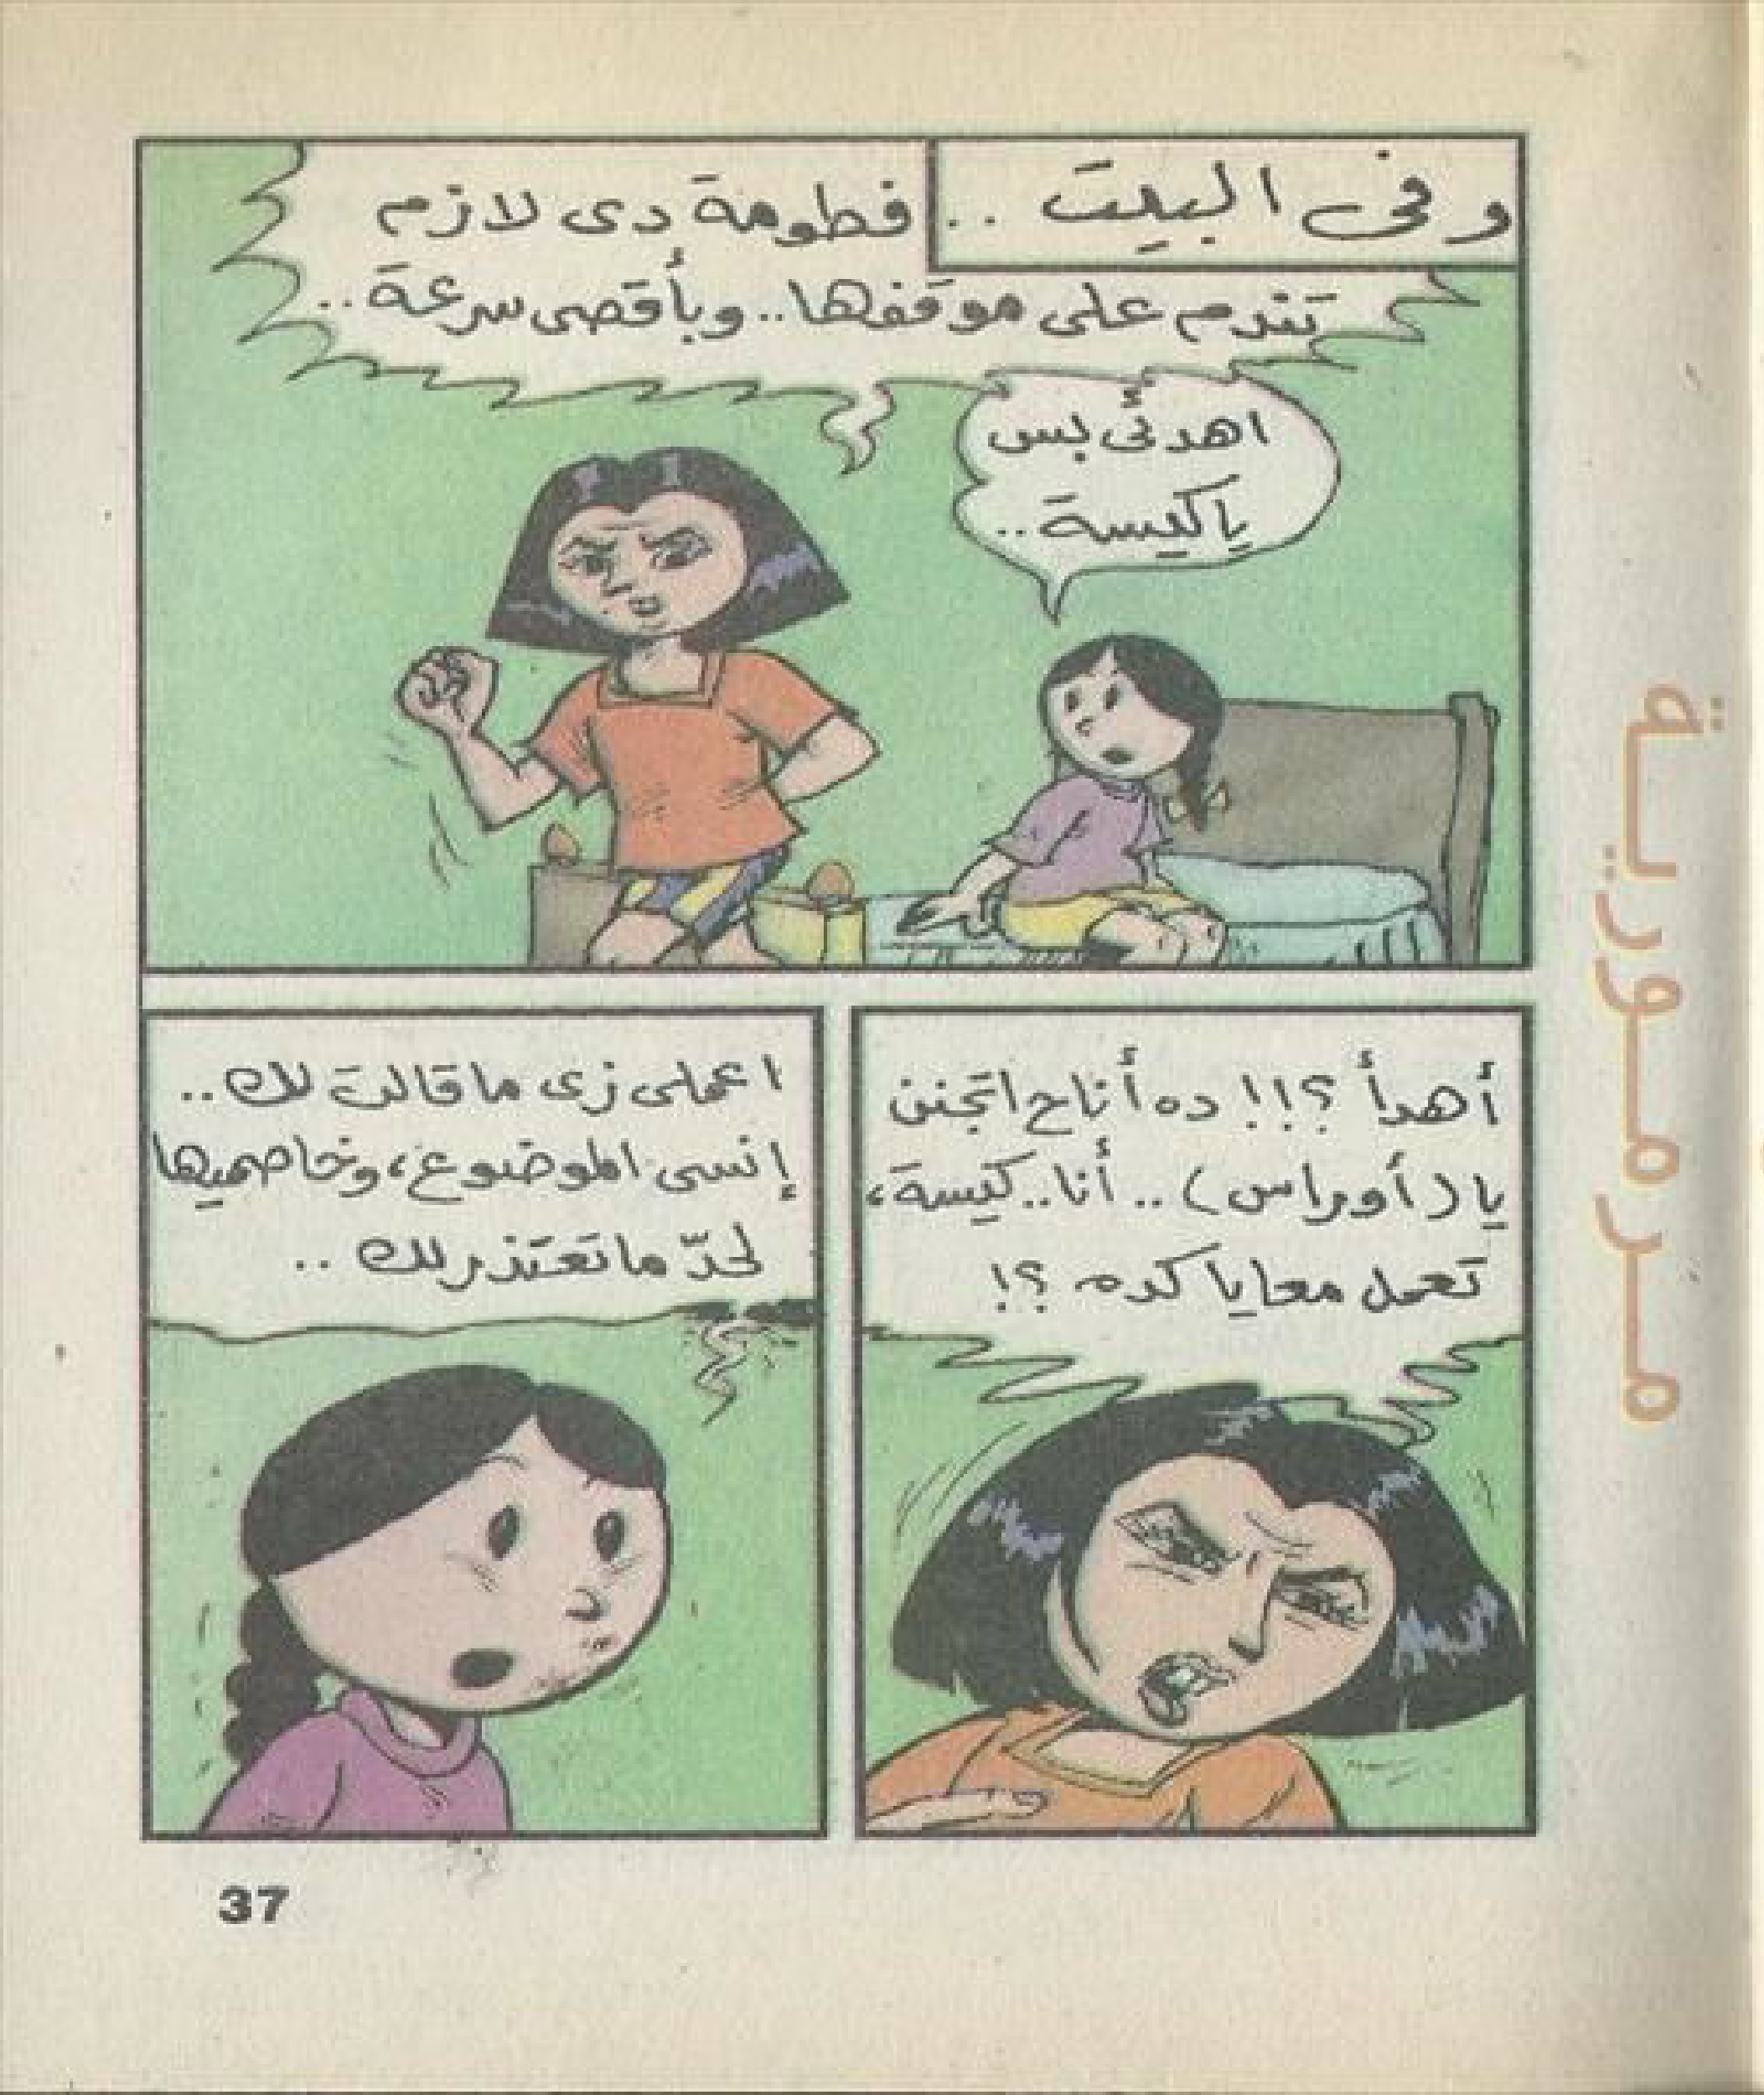 وفى البيت ..
فطومة دى لازم
تندم على موقفها.. وبأقصى سرعة..
اهدئى بس
ياكيسة..
أهدأ ؟!! ده أناح اتجنن
يا (أوراس) .. أنا.. كيسة،
تعمل معايا كده ؟!
اعملى زى ما قالت لك..
إنسى الموضوع، وخاصميها
لحدّ ما تعتذر لك ..
مرمورية
37